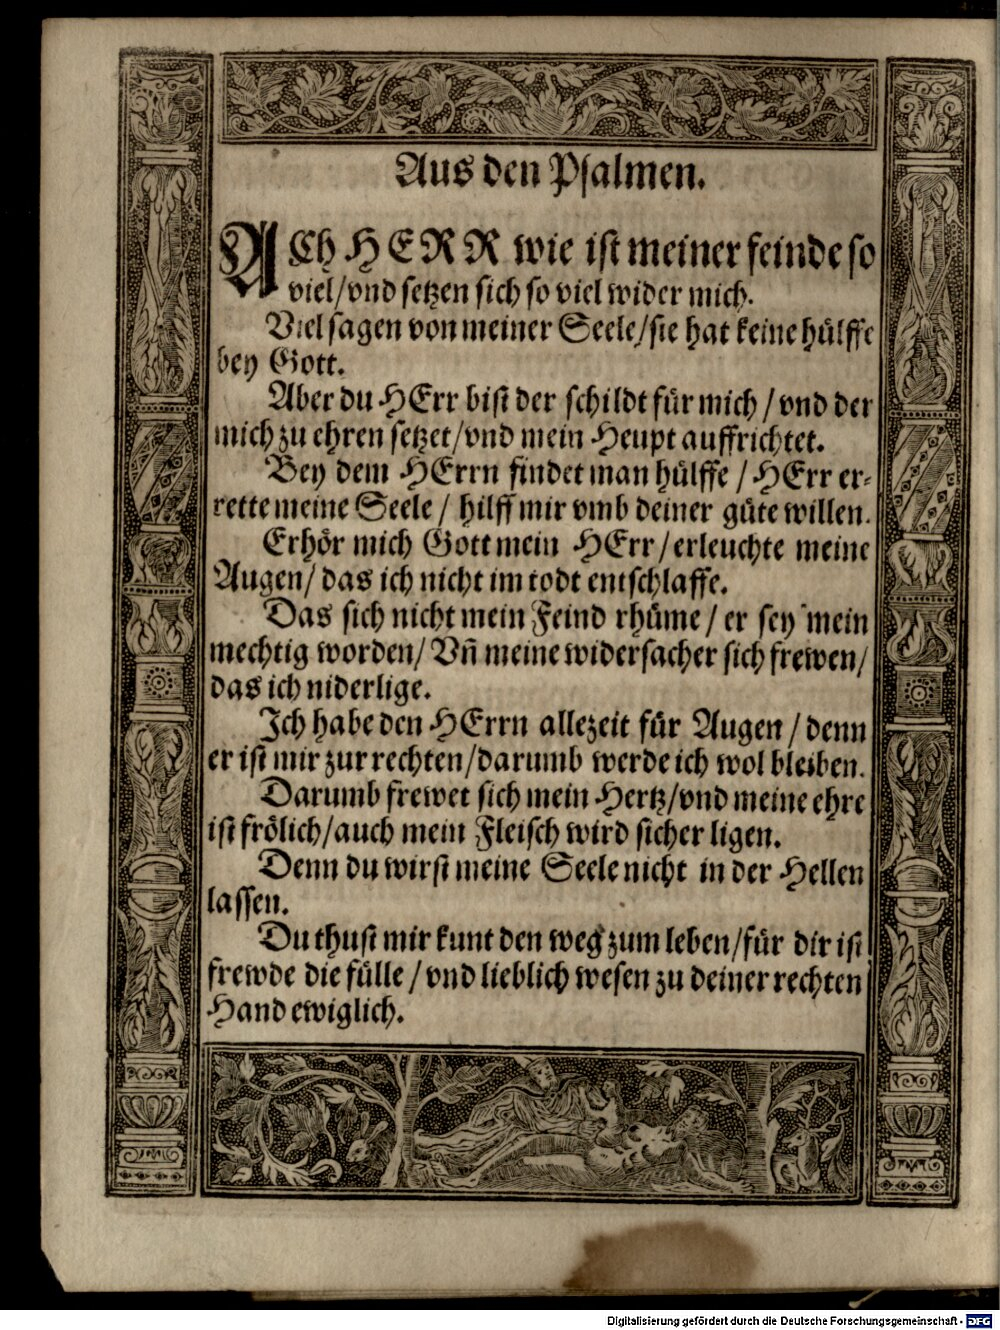 Aus den Psalmen.
ACh HERR wie ist meiner feinde so
viel/vnd setzen sich so viel wider mich.
Viel sagen von meiner Seele/sie hat keine hülffe
bey Gott.
Aber du HErr bist der schildt für mich/vnd der
mich zu ehren setzet/vnd mein Heupt auffrichtet.
Bey dem HErrn findet man hülffe/HErr er-
rette meine Seele/hilff mir vmb deiner güte willen.
Erhör mich Gott mein HErr/erleuchte meine
Augen/das ich nicht im todt entschlaffe.
Das sich nicht mein Feind rhüme/er sey mein
mechtig worden/Vñ meine widersacher sich frewen/
das ich niderlige.
Ich habe den HErrn allezeit für Augen/denn
er ist mir zur rechten/darumb werde ich wol bleiben.
Darumb frewet sich mein Hertz/vnd meine ehre
ist frölich/auch mein Fleisch wird sicher ligen.
Denn du wirst meine Seele nicht in der Hellen
lassen.
Du thust mir kunt den weg zum leben/für dir ist
frewde die fülle/vnd lieblich wesen zu deiner rechten
Hand ewiglich.
Digitalisierung gefördert durch die Deutsche Forschungsgemeinschaft - DFG